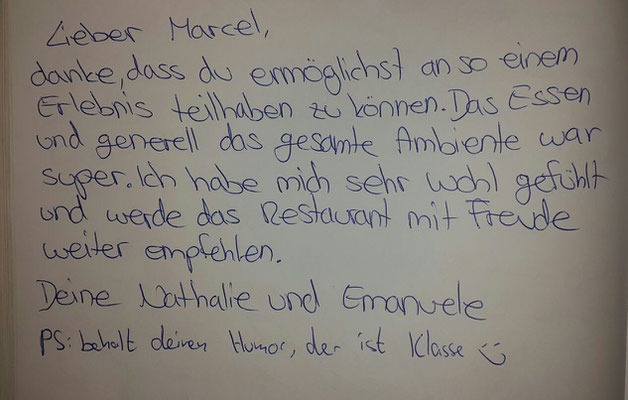 Lieber Marcel,
danke, dass du ermöglichst an so einem
Erlebnis teilhaben zu können. Das Essen
und generell das gesamte Ambiente war
super. Ich habe mich sehr wohl gefühlt
und werde das Restaurant mit Freude
weiter empfehlen.
Deine Nathalie und Emanuele
PS: behalt deinen Humor, der ist Klasse :)